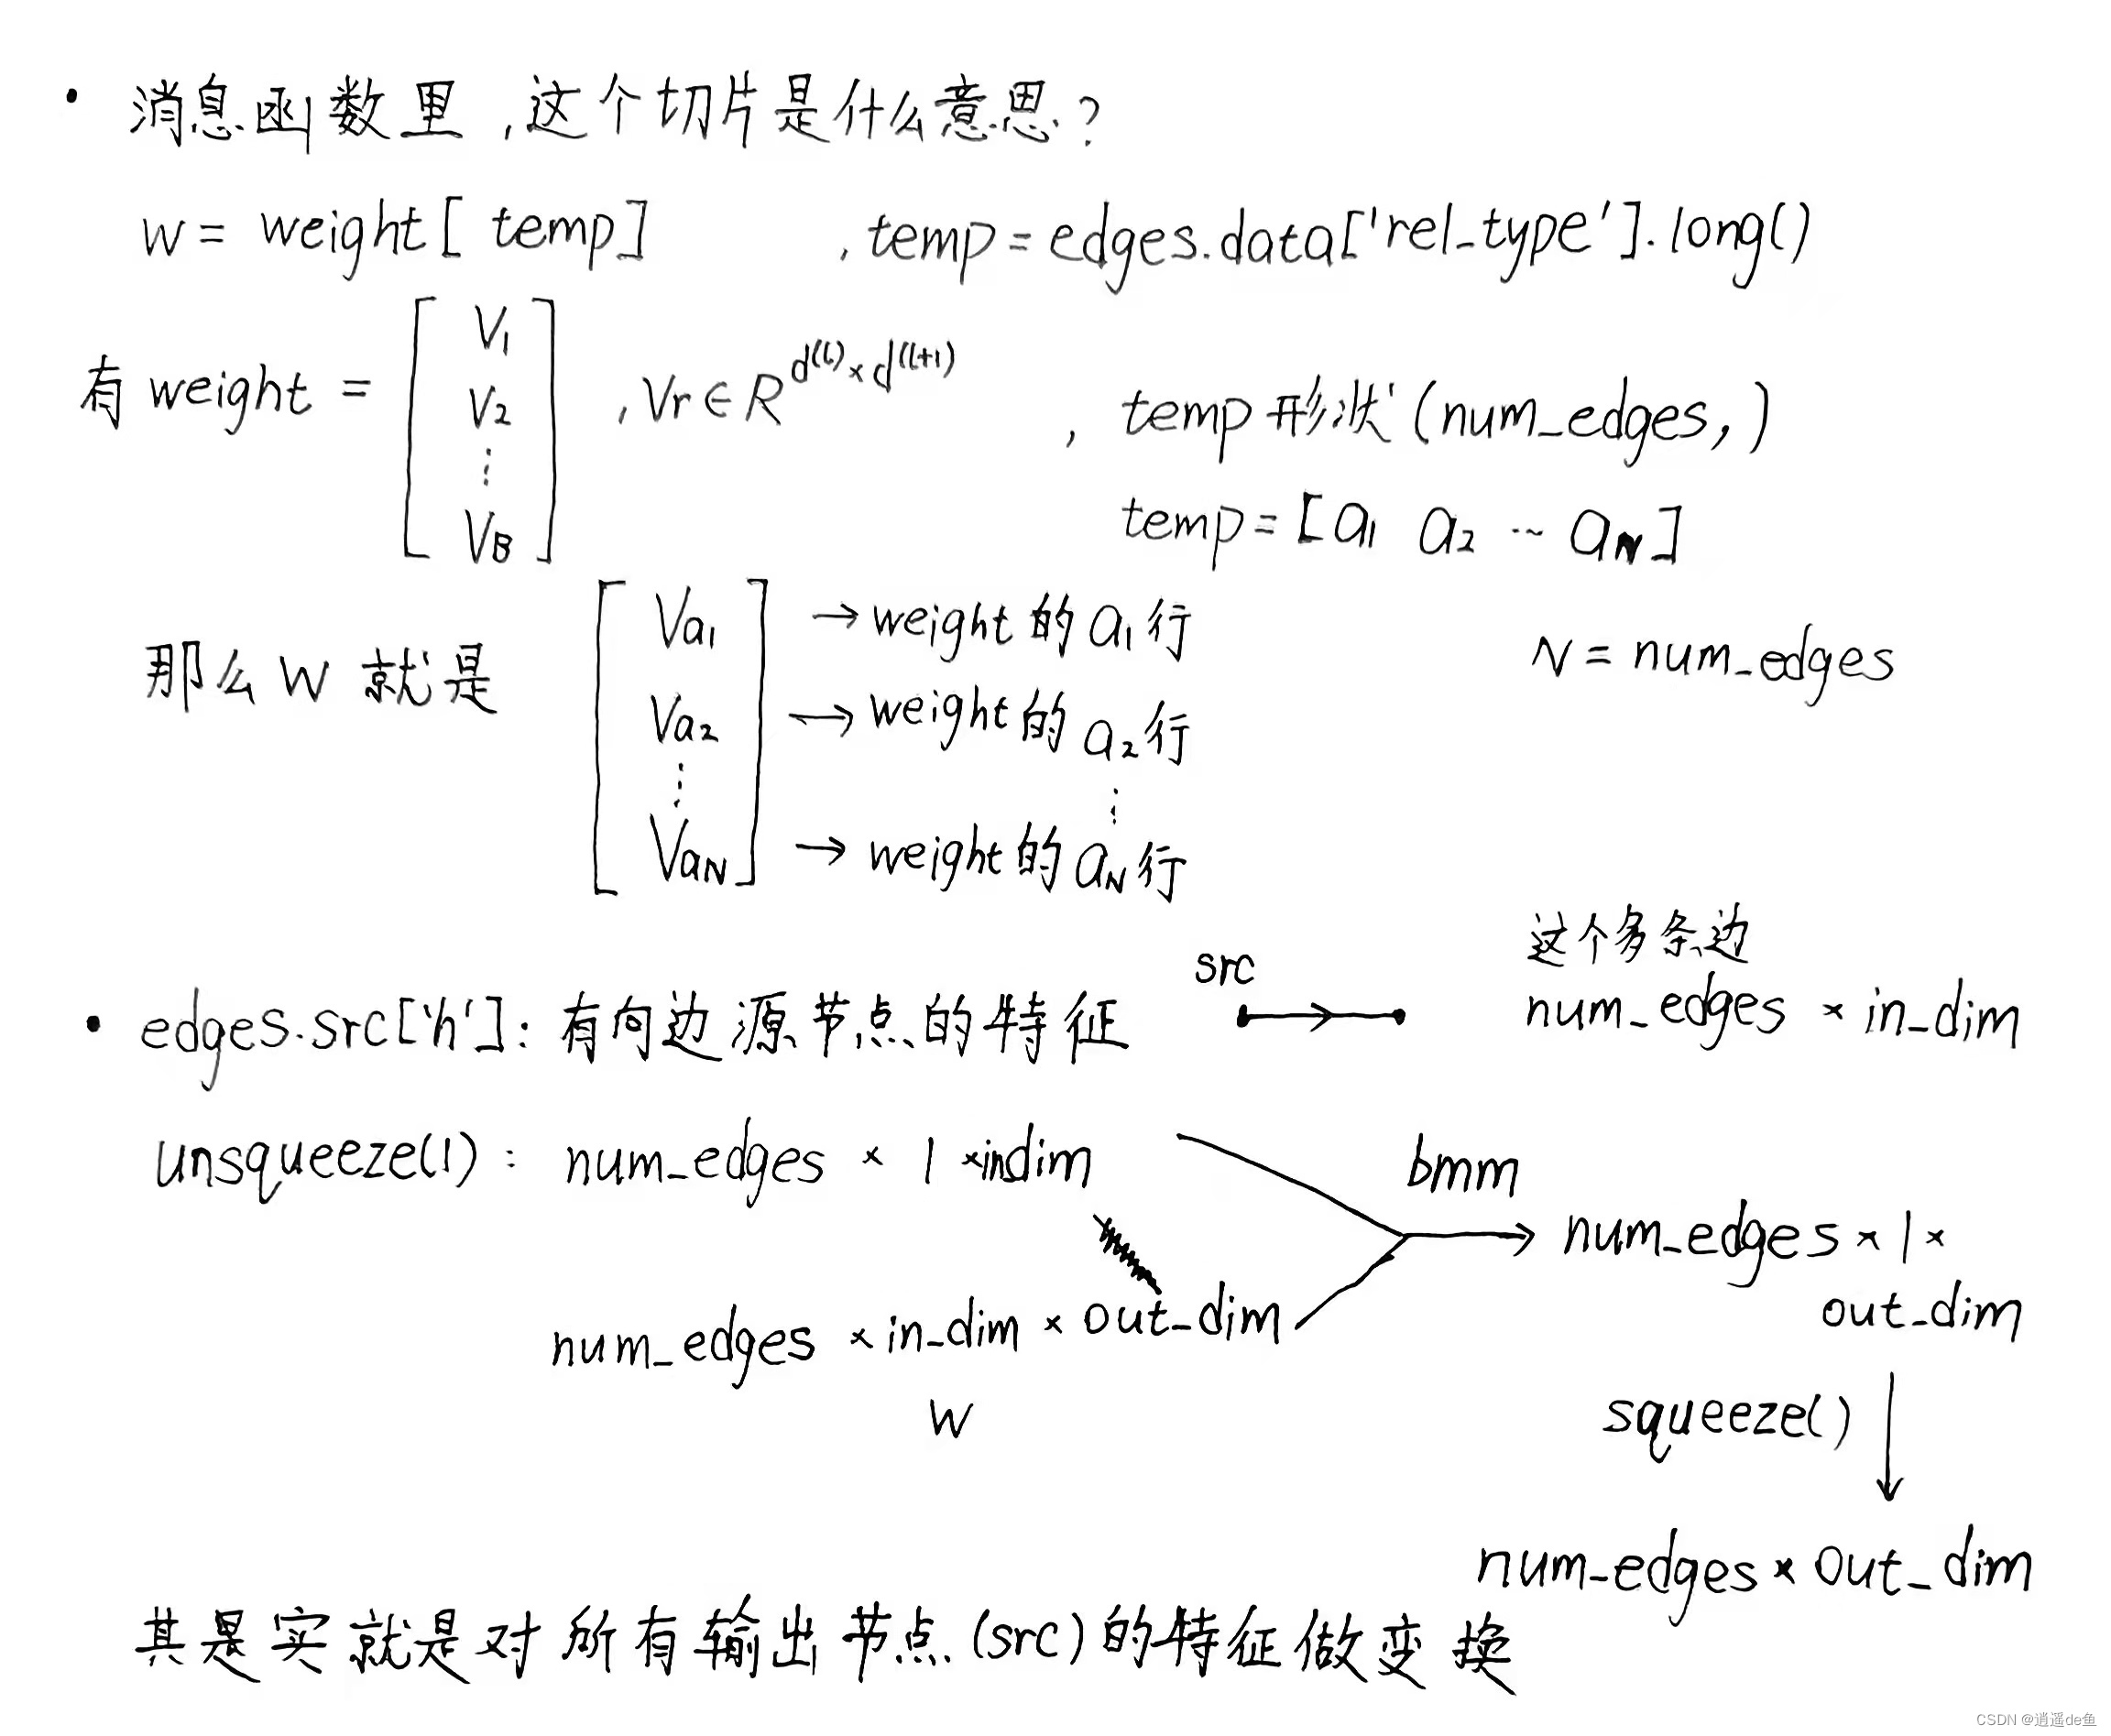 · 消息函数里,这个切片是什么意思?
w = weight[ temp] , temp = edges.data['rel_type'].long()
有 weight = [ V₁ V₂ ⋮ V_B ] , Vr ∈ R^{d^{(l)} × d^{(l+1)}} , temp 形状 (num_edges,)
temp = [a₁ a₂ … a_N]
那么 W 就是 [ Va₁ Va₂ ⋮ Va_N ]
→ weight 的 a₁ 行
N = num_edges
→ weight 的 a₂ 行
⋮
→ weight 的 a_N 行
这个多条边
· edges.src['h']: 有向边源节点的特征
src
num_edges × in_dim
unsqueeze(1) : num_edges × 1 × indim
bmm
num_edges × 1 ×
out_dim
num_edges × in_dim × out_dim
W
squeeze()
num_edges × out_dim
其是实就是对所有输出节点(src)的特征做变换
CSDN @逍遥de鱼